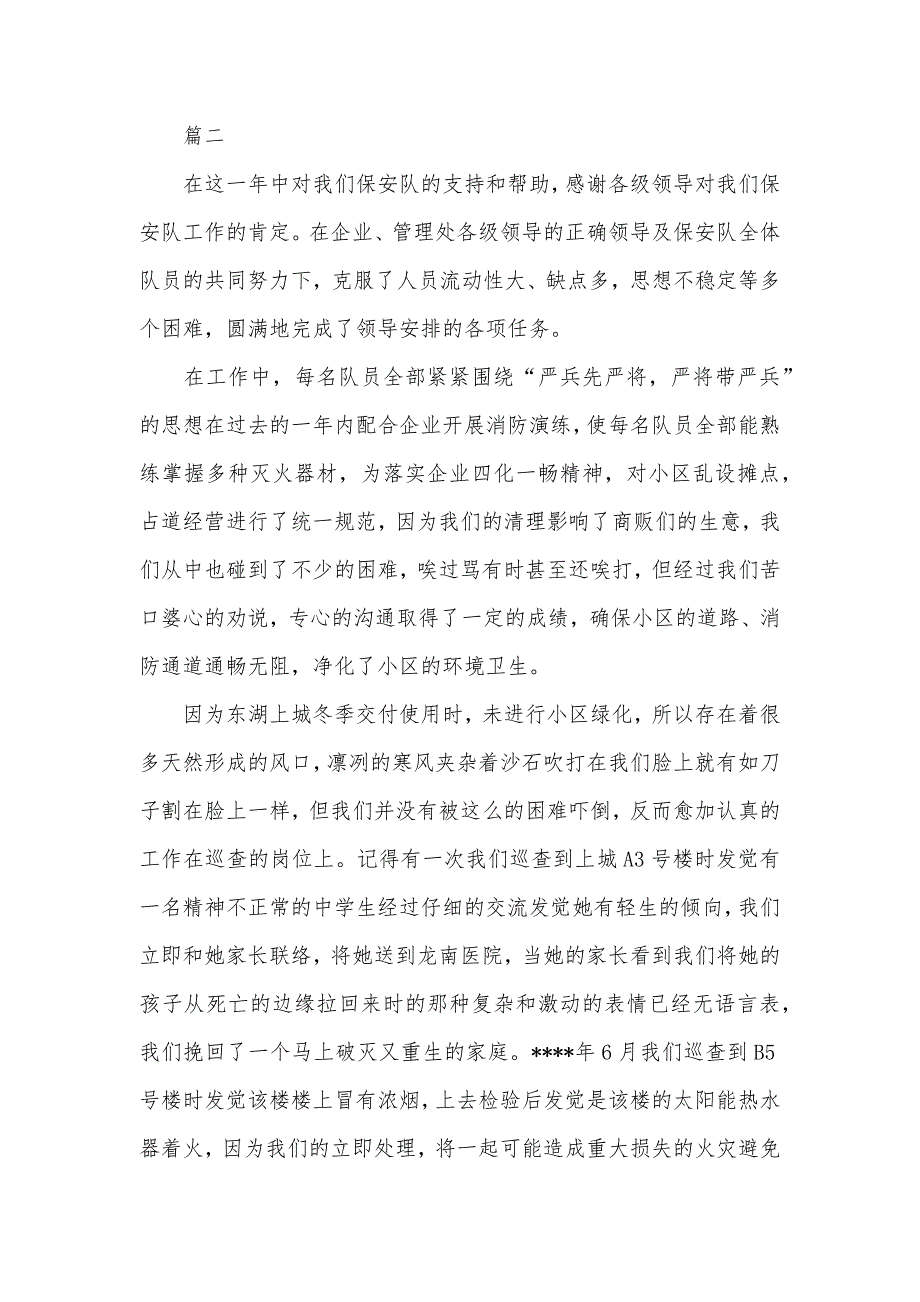 篇二
在这一年中对我们保安队的支持和帮助，感谢各级领导对我们保
安队工作的肯定。在企业、管理处各级领导的正确领导及保安队全体
队员的共同努力下，克服了人员流动性大、缺点多，思想不稳定等多
个困难，圆满地完成了领导安排的各项任务。
在工作中，每名队员全部紧紧围绕“严兵先严将，严将带严兵”
的思想在过去的一年内配合企业开展消防演练，使每名队员全部能熟
练掌握多种灭火器材，为落实企业四化一畅精神，对小区乱设摊点，
占道经营进行了统一规范，因为我们的清理影响了商贩们的生意，我
们从中也碰到了不少的困难，唉过骂有时甚至还唉打，但经过我们苦
口婆心的劝说，专心的沟通取得了一定的成绩，确保小区的道路、消
防通道通畅无阻，净化了小区的环境卫生。
因为东湖上城冬季交付使用时，未进行小区绿化，所以存在着很
多天然形成的风口，凛冽的寒风夹杂着沙石吹打在我们脸上就有如刀
子割在脸上一样，但我们并没有被这么的困难吓倒，反而愈加认真的
工作在巡查的岗位上。记得有一次我们巡查到上城 A3 号楼时发觉有
一名精神不正常的中学生经过仔细的交流发觉她有轻生的倾向，我们
立即和她家长联络，将她送到龙南医院，当她的家长看到我们将她的
孩子从死亡的边缘拉回来时的那种复杂和激动的表情已经无语言表，
我们挽回了一个马上破灭又重生的家庭。****年 6 月我们巡查到 B5
号楼时发觉该楼楼上冒有浓烟，上去检验后发觉是该楼的太阳能热水
器着火，因为我们的立即处理，将一起可能造成重大损失的火灾避免